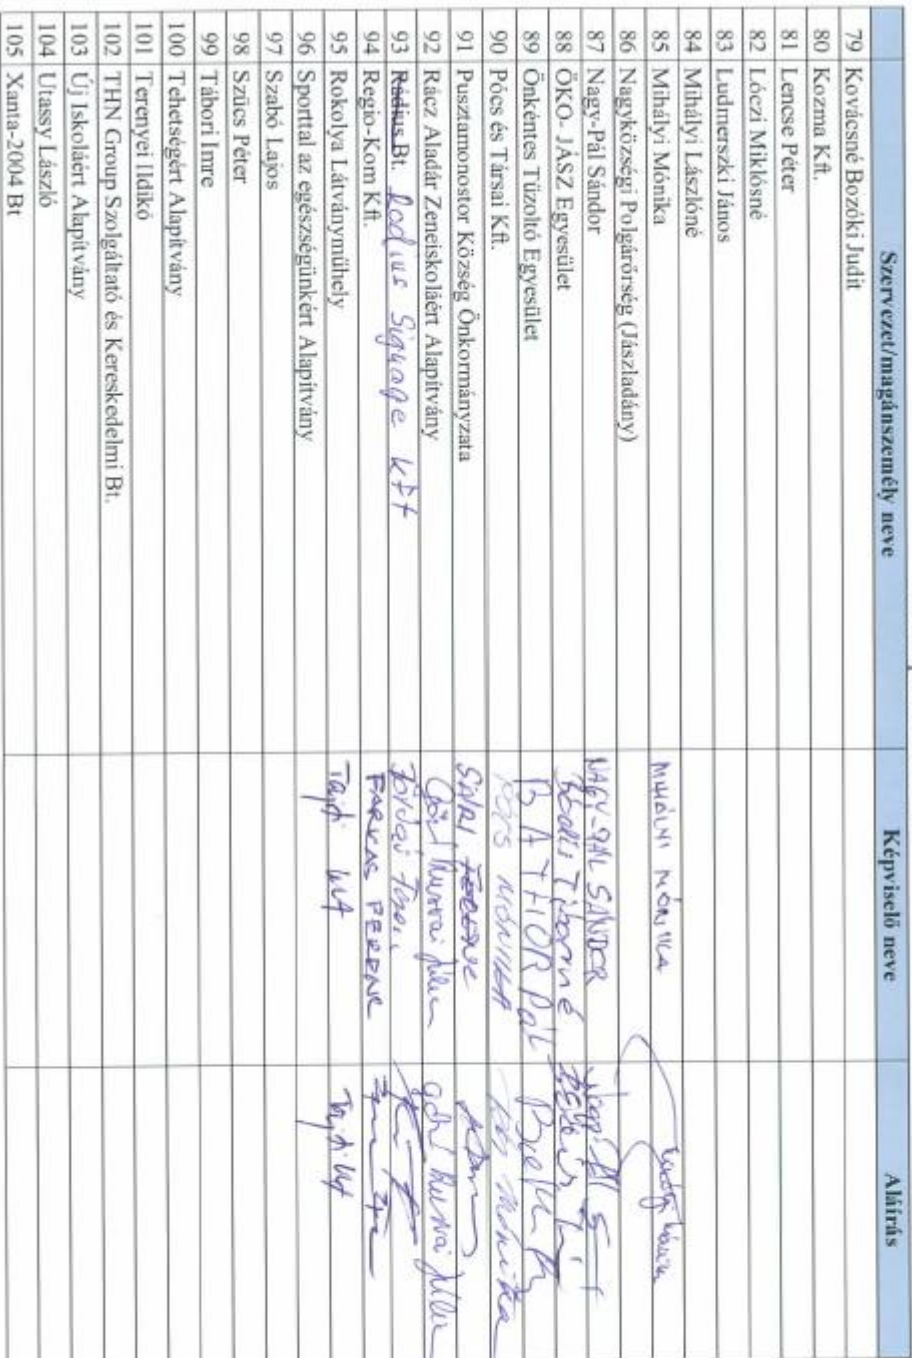 Szervezet/magánszemély neve Képviselő neve Aláírás
79 Kovácsné Bozóki Judit
80 Kozma Kft.
81 Lencse Péter
82 Lóczi Miklósné
83 Ludmerszki János
84 Mihályi Lászlóné
85 Mihályi Mónika MIHÁLYI MÓNIKA
86 Nagyközségi Polgárőrség (Jászladány)
87 Nagy-Pál Sándor NAGY-PÁL SÁNDOR
88 ÖKO- JÁSZ Egyesület Tiborné
89 Önkéntes Tűzoltó Egyesület Pál
90 Pócs és Társai Kft. PÓCS MÓNIKA Mónika
91 Pusztamonostor Község Önkormányzata
92 Rácz Aladár Zeneiskoláért Alapítvány
93 Rádius Bt. Radius Signage Kft
94 Regio-Kom Kft. FARKAS FERENC
95 Rokolya Látványműhely
96 Sporttal az egészségünkért Alapítvány
97 Szabó Lajos
98 Szűcs Péter
99 Tábori Imre
100 Tehetségért Alapítvány
101 Terenyei Ildikó
102 THN Group Szolgáltató és Kereskedelmi Bt.
103 Új Iskoláért Alapítvány
104 Utassy László
105 Xanta-2004 Bt